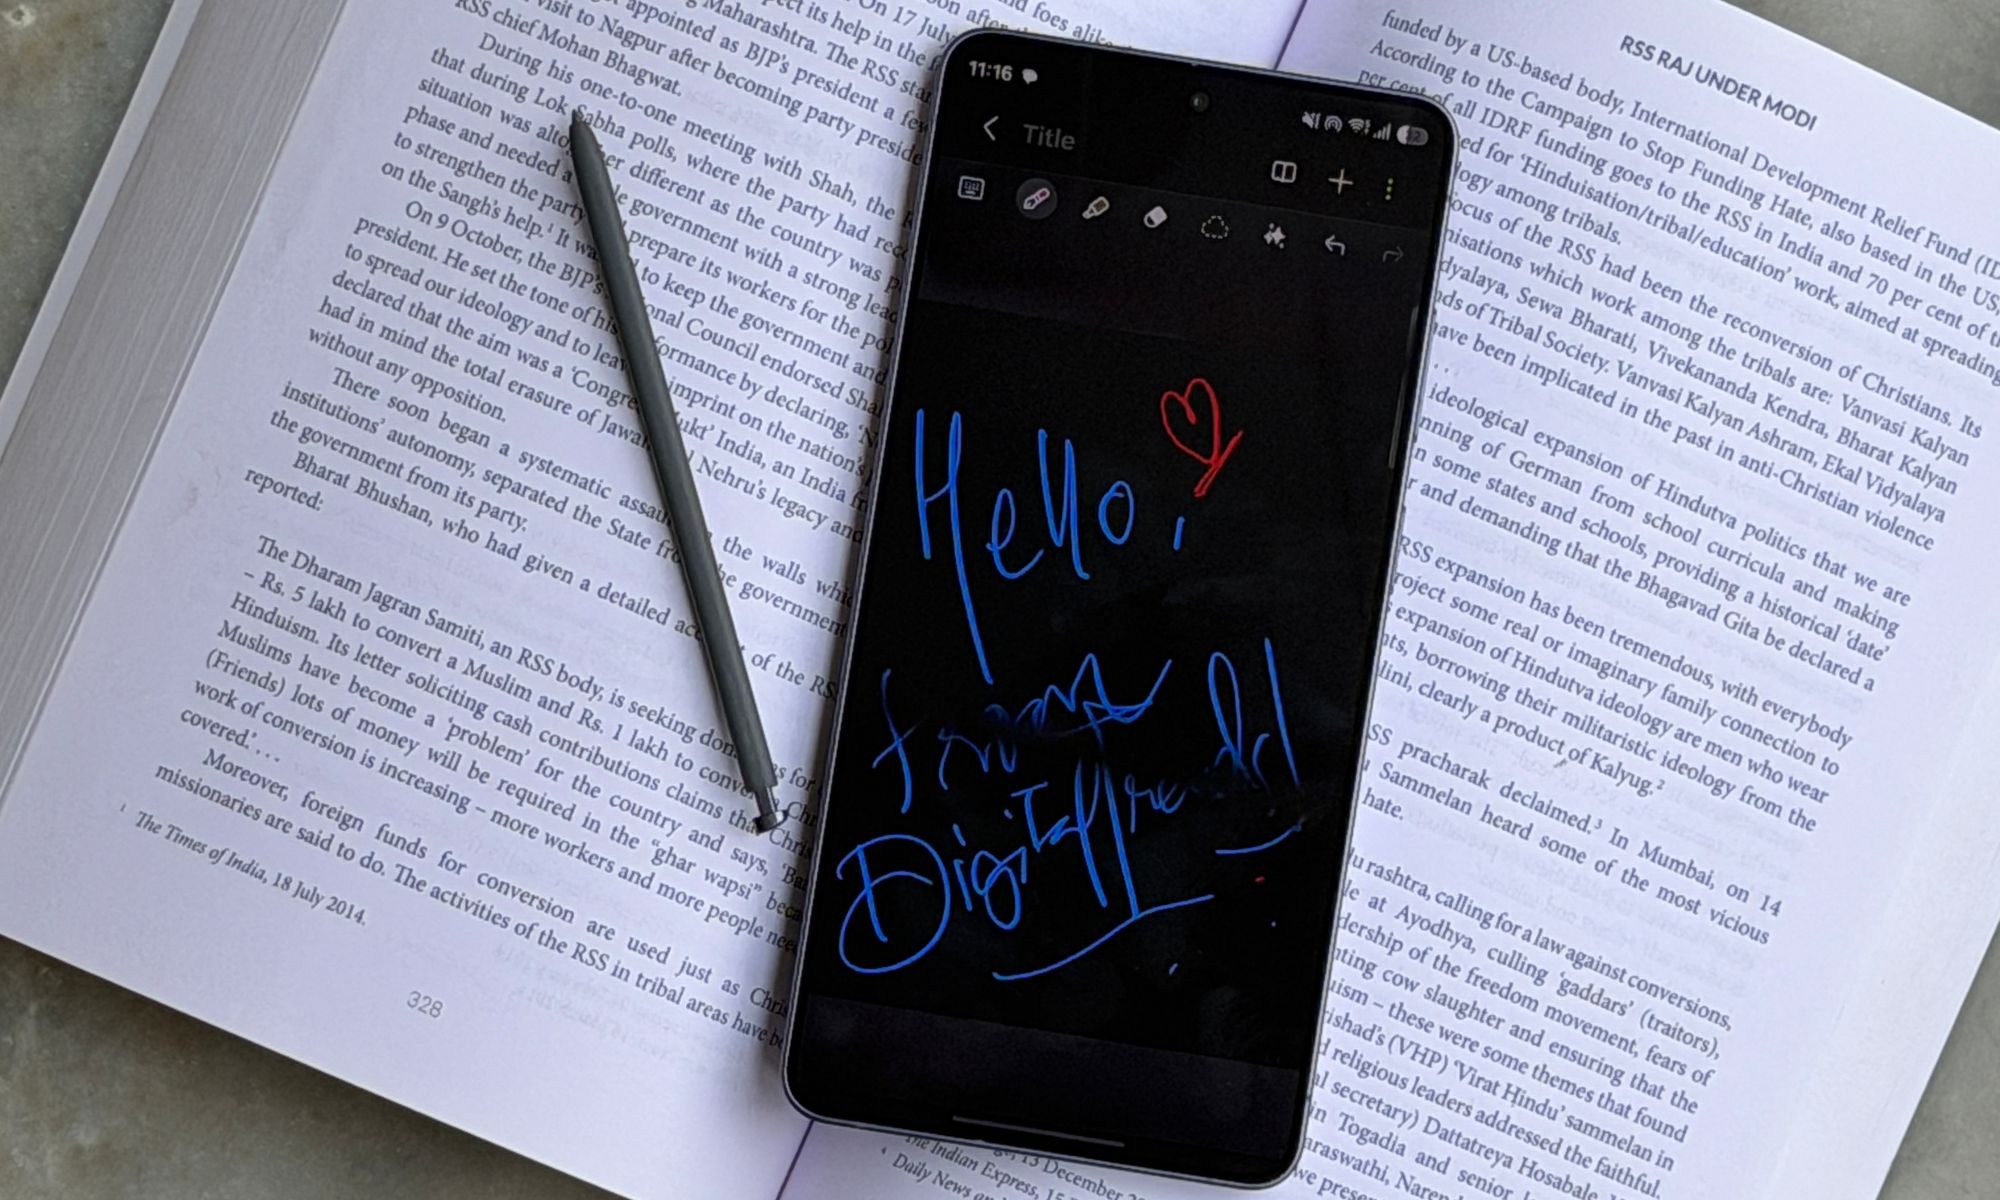 RSS chief Mohan Bhagwat.
visit to Nagpur after becoming party preside
appointed as BJP's president a few
Maharashtra. The RSS star
its help in the
On 17 July
foes alike
During his one-to-one meeting with Shah, the
that during Lok Sabha polls, where the party had rec
situation was different as the country was
phase and needed a government with a strong lead
to strengthen the party prepare its workers for the pol
on the Sangh's help.¹ It to keep the government and
On 9 October, the BJP's Council endorsed Sha
president. He set the tone of his formance by declaring, 'N
to spread our ideology and to imprint on the nation's
declared that the aim was a 'Congre ukt' India, an India
had in mind the total erasure of Nehru's legacy and
without any opposition.
There soon began a systematic the walls
institutions' autonomy, separated the State the government
the government from its party.
Bharat Bhushan, who had given a detailed of the RS
reported:
The Dharam Jagran Samiti, an RSS body, is seeking for
– Rs. 5 lakh to convert a Muslim and Rs. 1 lakh to
Hinduism. Its letter soliciting cash contributions claims Chris
Muslims have become a 'problem' for the country and says,
(Friends) lots of money will be required in the "ghar wapsi"
work of conversion is increasing – more workers and more people
covered.'. . .
Moreover, foreign funds for conversion are used just as Chris
missionaries are said to do. The activities of the RSS in tribal areas have be
¹ The Times of India, 18 July 2014.
328
11:16
Title
Hello!
from
Digital Trendz
RSS RAJ UNDER MODI
funded by a US-based body, International Development Relief Fund
According to the Campaign to Stop Funding Hate, also based in the US,
per cent of all IDRF funding goes to the RSS in India and 70 per cent of
ed for 'Hinduisation/tribal/education' work, aimed at spreading
logy among tribals.
ocus of the RSS had been the reconversion of Christians. Its
nisations which work among the tribals are: Vanvasi Kalyan
dyalaya, Sewa Bharati, Vivekananda Kendra, Bharat Kalyan
ds of Tribal Society. Vanvasi Kalyan Ashram, Ekal Vidyalaya
have been implicated in the past in anti-Christian violence
. . .
ideological expansion of Hindutva politics that we are
nning of German from school curricula and making
n some states and schools, providing a historical 'date'
r and demanding that the Bhagavad Gita be declared a
RSS expansion has been tremendous, with everybody
roject some real or imaginary family connection to
expansion of Hindutva ideology are men who wear
nts, borrowing their militaristic ideology from the
lini, clearly a product of Kalyug.²
SS pracharak declaimed.³ In Mumbai, on 14
Sammelan heard some of the most vicious
hate.
du rashtra, calling for a law against conversions,
le at Ayodhya, culling 'gaddars' (traitors),
dership of the freedom movement, fears of
nting cow slaughter and ensuring that the
uism – these were some themes that found
rishad's (VHP) 'Virat Hindu' sammelan in
d religious leaders addressed the faithful.
l secretary) Dattatreya Hosabale,
in Togadia and senior
araswathi, Naren
we presen
The Indian Express, 15
13 December
⁴ Daily News